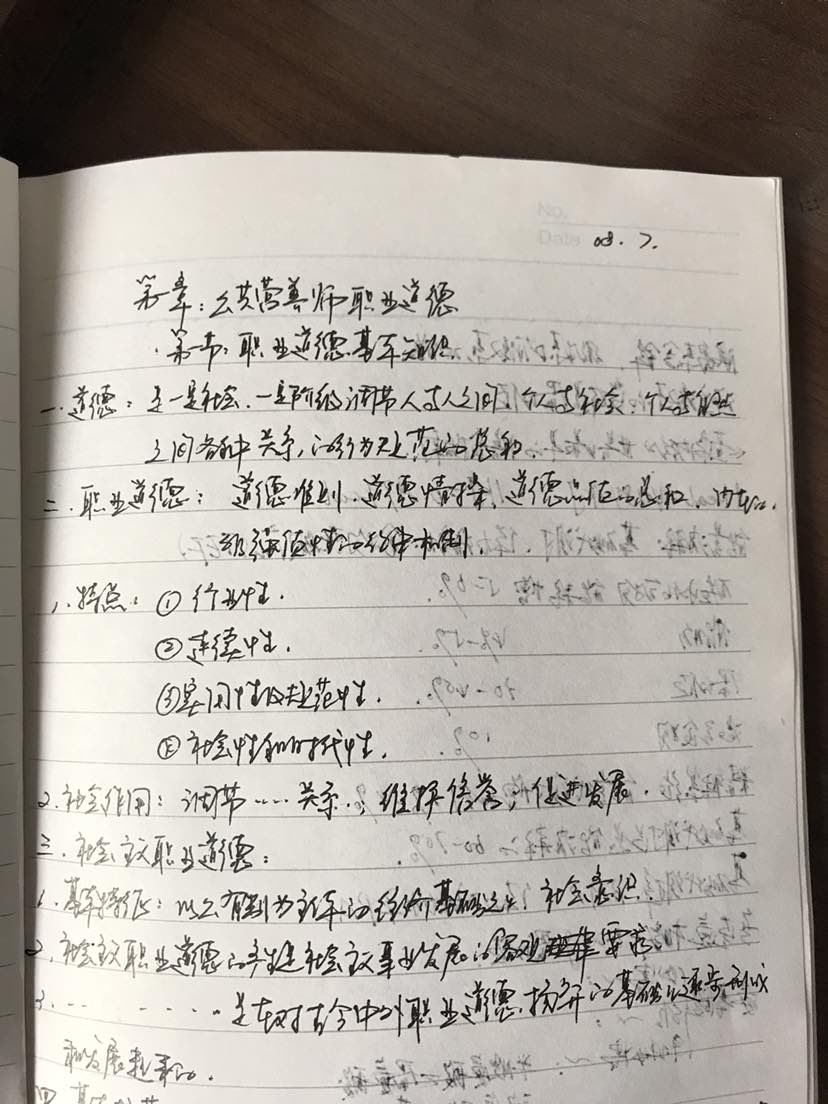 No.
Date 08.7.
第一章：公共营养师职业道德
第一节：职业道德基本知识
一.道德：是一定社会、一定阶级调节人与人之间、个人与社会、个人与自然
之间各种关系的行为规范的总和
二.职业道德：道德准则、道德情操、道德品质的总和
1.特点：①行业性.
②连续性.
③实用性及规范性.
④社会性和时代性.
2.社会作用：调节……关系，维护信誉，促进发展.
三.社会主义职业道德：
1.基本特征：以公有制为主体的经济基础之上，社会意识.
2.社会主义职业道德的产生是社会主义事业发展的客观要求
3.……是在对古今中外职业道德扬弃的基础上逐步形成
和发展起来的.
四.